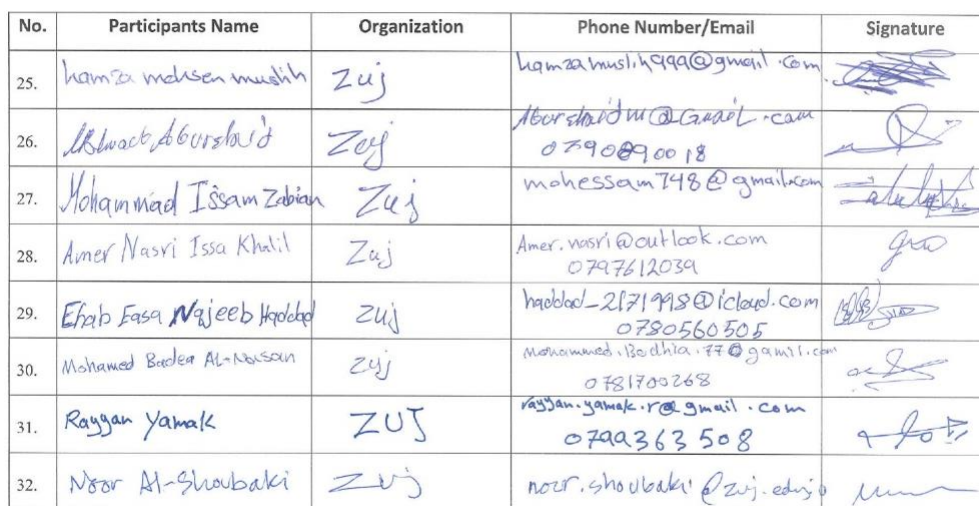 No. Participants Name Organization Phone Number/Email Signature
25. hamza mohsen muslih Zuj hamzamuslih999@gmail.com
26. Zuj
0790890018
27. Mohammad Issam Zabian Zuj mohessam748@gmail.com
28. Amer Nasri Issa Khalil Zuj Amer.nasri@outlook.com
0797612039
29. Ehab Easa Najeeb Haddad Zuj haddad_2171998@icloud.com
0780560505
30. Mohamed Badea Zuj
0781700268
31. Rayyan Yamak ZUJ rayyan.yamak.r@gmail.com
0799363508
32. Noor Al-Shoubaki Zuj